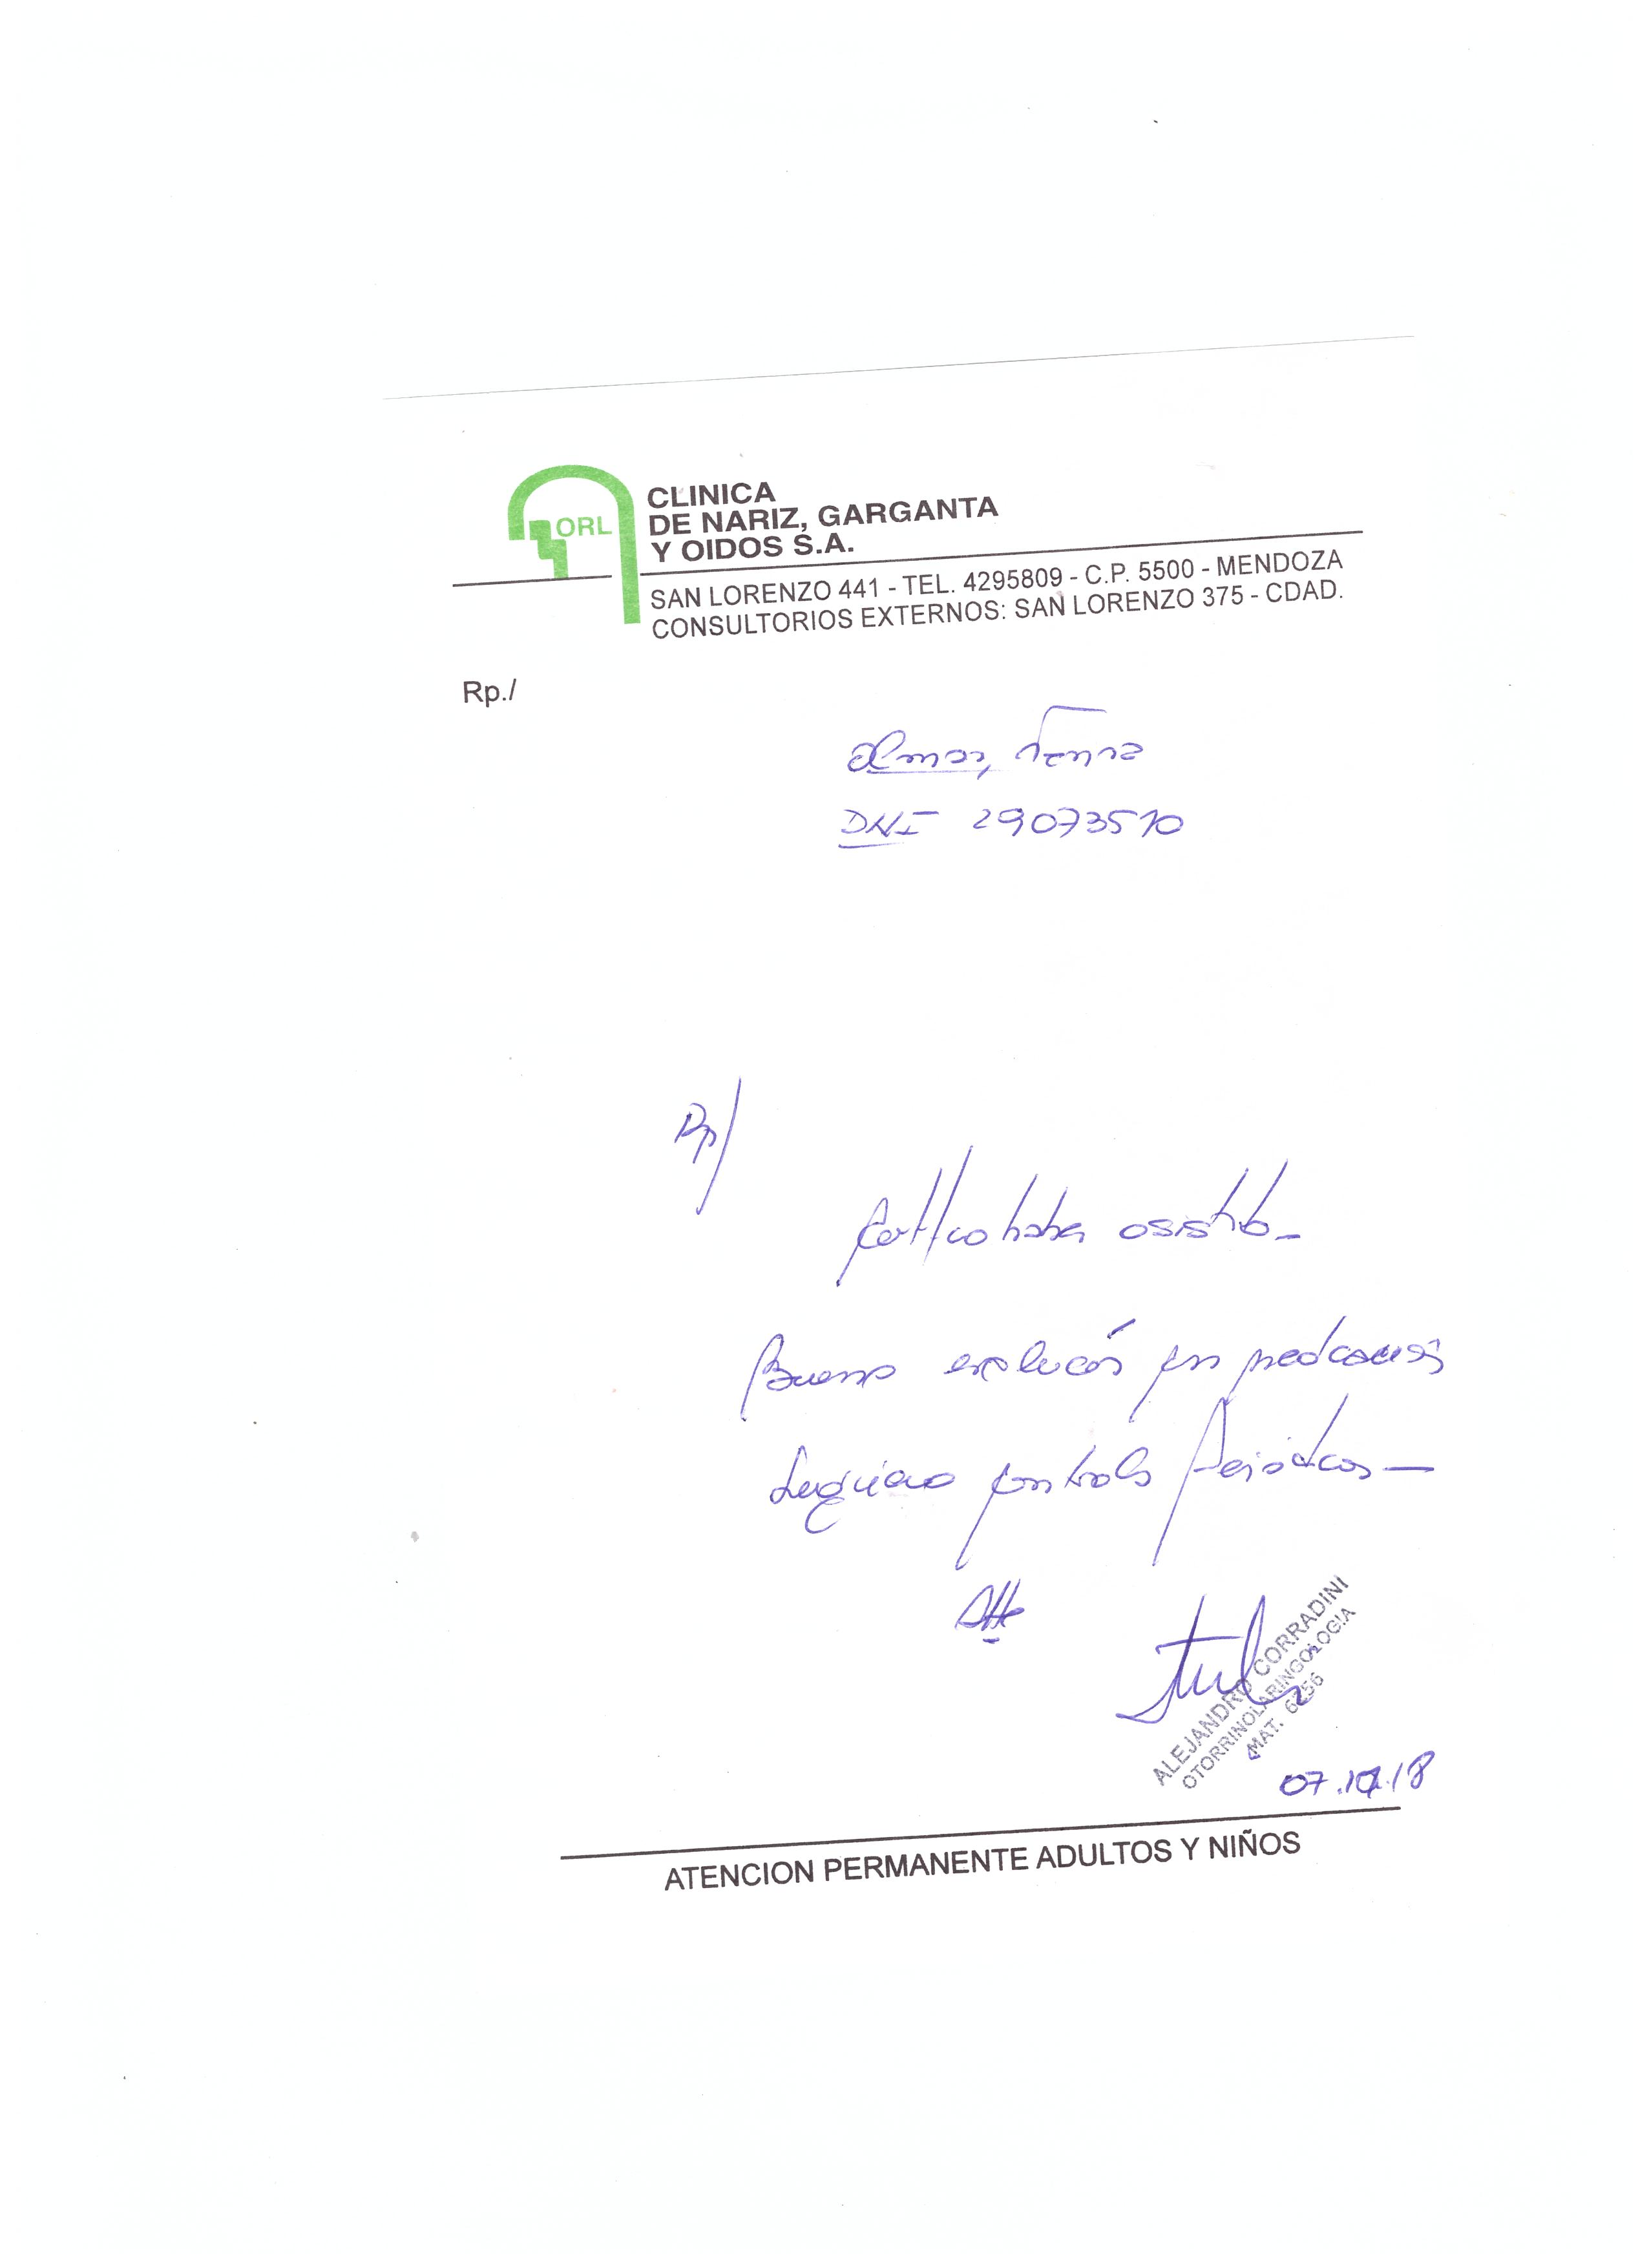 ORL
CLINICA
DE NARIZ, GARGANTA
Y OIDOS S.A.
SAN LORENZO 441 - TEL. 4295809 - C.P. 5500 - MENDOZA
CONSULTORIOS EXTERNOS: SAN LORENZO 375 - CDAD.
Rp./
DNI 29073510
Rp/
Certifico haber asistido
Buena evolución con medicación
controles periódicos
Atte
ALEJANDRO CORRADINI
OTORRINOLARINGOLOGIA
MAT. 6256
ATENCION PERMANENTE ADULTOS Y NIÑOS